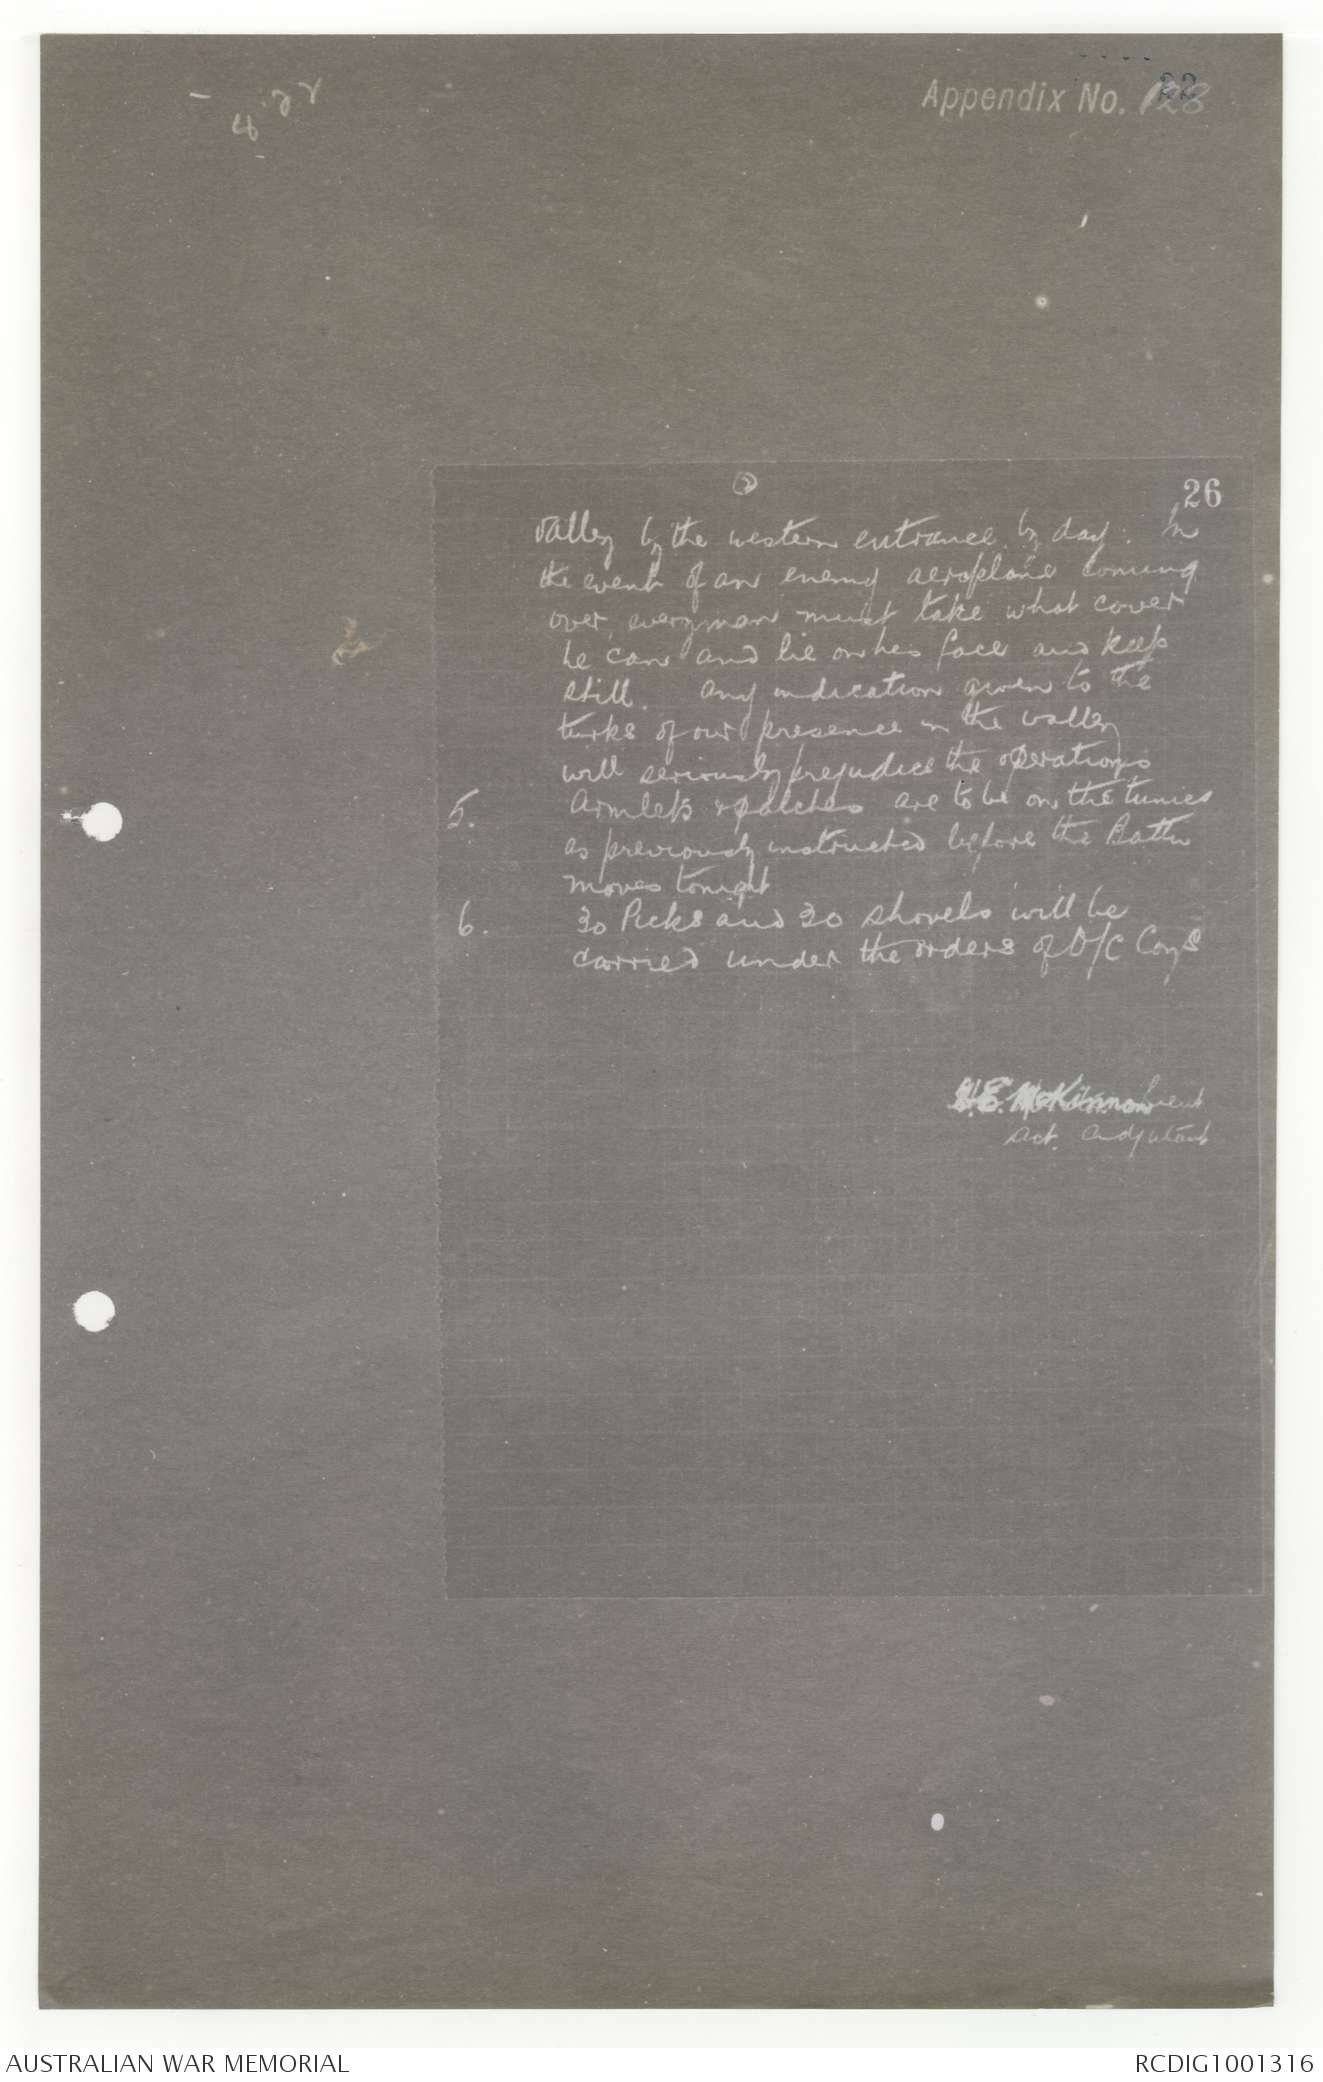 Appendix No. 128
22
2
26
valley by the western entrance by day. In
the event of an enemy aeroplane coming
over, everyman must take what cover
he can and lie on his face and keep
still. Any indication given to the
turks of our presence in the valley
will seriously prejudice the operations
5. Armlets & patches are to be on the tunics
as previously instructed before the Battn
moves tonight
6. 30 Picks and 30 shovels will be
carried under the orders of O/C Coys
H.E. McKinnon Lieut
Act. Andjutant
AUSTRALIAN WAR MEMORIAL
RCDIG1001316